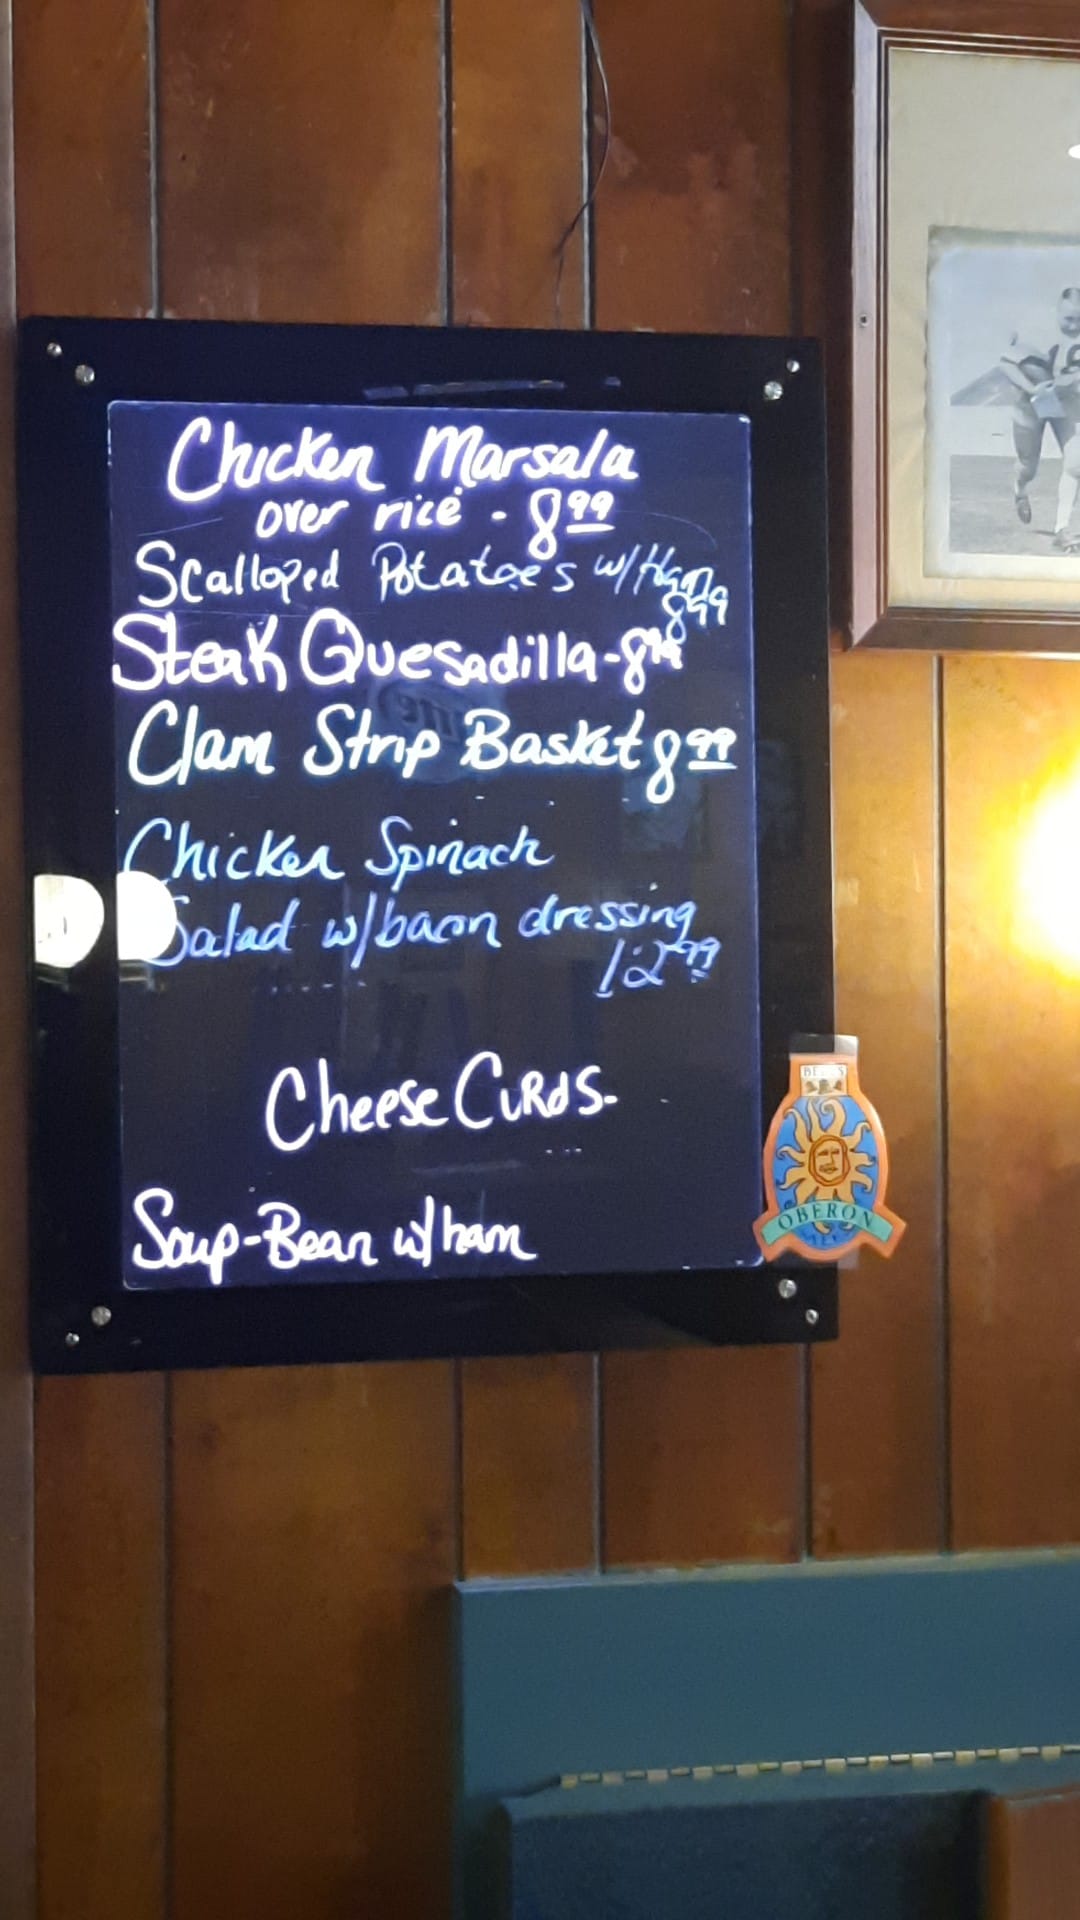 Chicken Marsala
over rice - 8 99
Scalloped Potatoes w/Ham
8 99
Steak Quesadilla - 8 99
Clam Strip Basket 8 99
Chicken Spinach
Salad w/bacon dressing
12 99
Cheese Curds-
Soup-Bean w/ham
BELL'S
OBERON